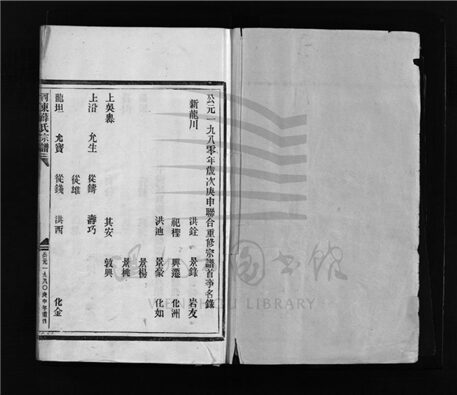 公元一九八零年歲次庚申聯合重修宗譜首事名錄
新龍川 洪銓 景鋒 岩友
祀樫 興邊 化洲
洪迪 景豪 化如
景楊
上吳嶴 其安 景桃
敦興
上沿 允生 從鑄 壽巧
從雄
龍坦 允寶 從錢 洪西 化金
河東薛氏宗譜
公元一九八〇庚申年重修
WENZHOU LIBRARY